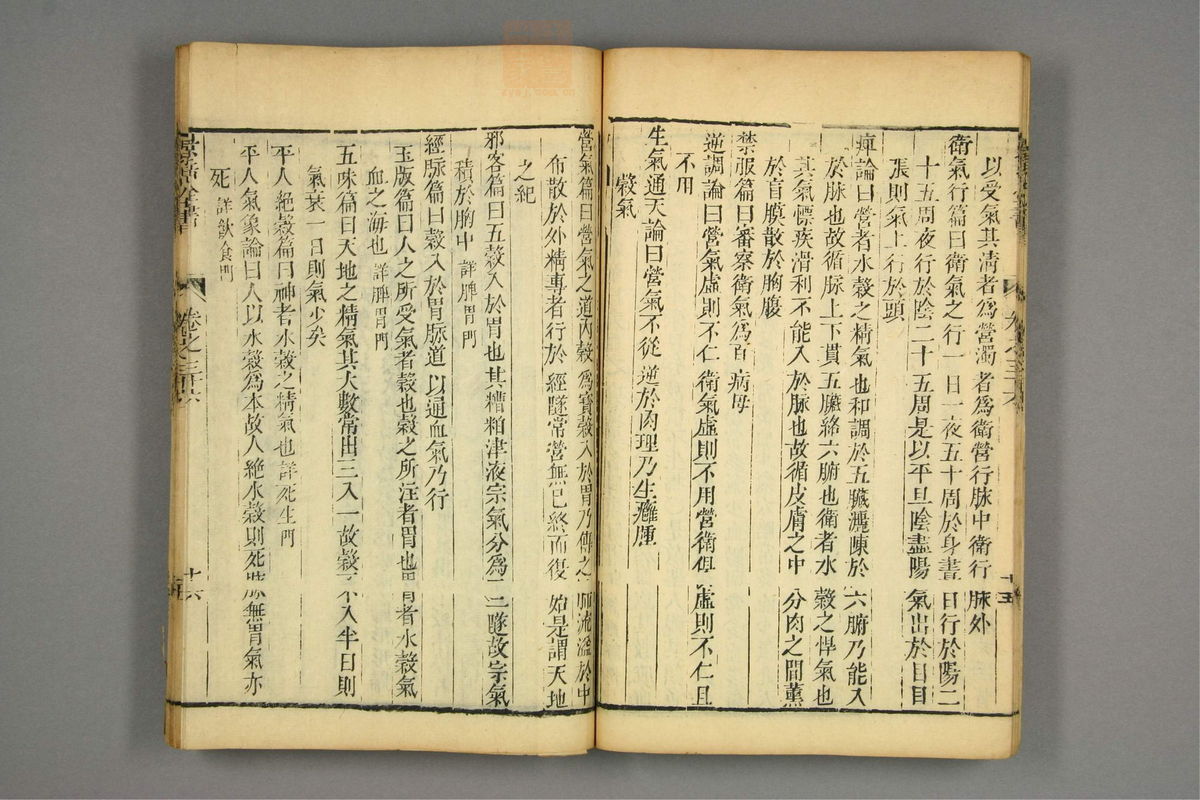 以受氣其淸者爲營濁者爲衛營行脉中衛行脉外
衛氣行篇曰衛氣之行一日一夜五十周於身晝日行於陽二
十五周夜行於陰二十五周是以平旦陰盡陽氣出於目目
張則氣上行於頭
痺論曰營者水穀之精氣也和調於五臟灑陳於六腑乃能入
於脉也故循脉上下貫五臟絡六腑也衛者水穀之悍氣也
其氣慓疾滑利不能入於脉也故循皮膚之中分肉之間薰
於肓膜散於胸腹
禁服篇曰審察衛氣爲百病母
逆調論曰營氣虛則不仁衛氣虛則不用營衛俱虛則不仁且
不用
生氣通天論曰營氣不從逆於肉理乃生癰腫
穀氣
營氣篇曰營氣之道內穀爲寳穀入於胃乃傳之肺流溢於中
布散於外精專者行於經隧常營無已終而復始是謂天地
之紀
邪客篇曰五穀入於胃也其糟粕津液宗氣分爲三隧故宗氣
積於胸中 詳脾胃門
經脉篇曰穀入於胃脉道以通血氣乃行
玉版篇曰人之所受氣者穀也穀之所注者胃也胃者水穀氣
血之海也 詳脾胃門
五味篇曰天地之精氣其大數常出三入一故穀不入半日則
氣衰一日則氣少矣
平人絶穀篇曰神者水穀之精氣也詳死生門
平人氣象論曰人以水穀爲本故人絶水穀則死脉無胃氣亦
死 詳飲食門
卷之三十六
十六
十五